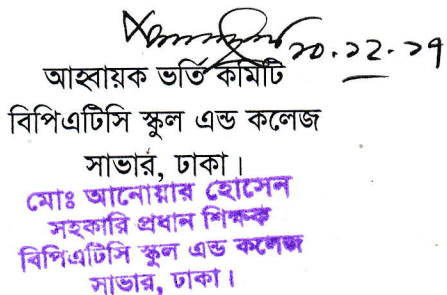 ২০.১২.১৭
আহ্বায়ক ভর্তি কমিটি
বিপিএটিসি স্কুল এন্ড কলেজ
সাভার, ঢাকা।
মোঃ আনোয়ার হোসেন
সহকারি প্রধান শিক্ষক
বিপিএটিসি স্কুল এন্ড কলেজ
সাভার, ঢাকা।